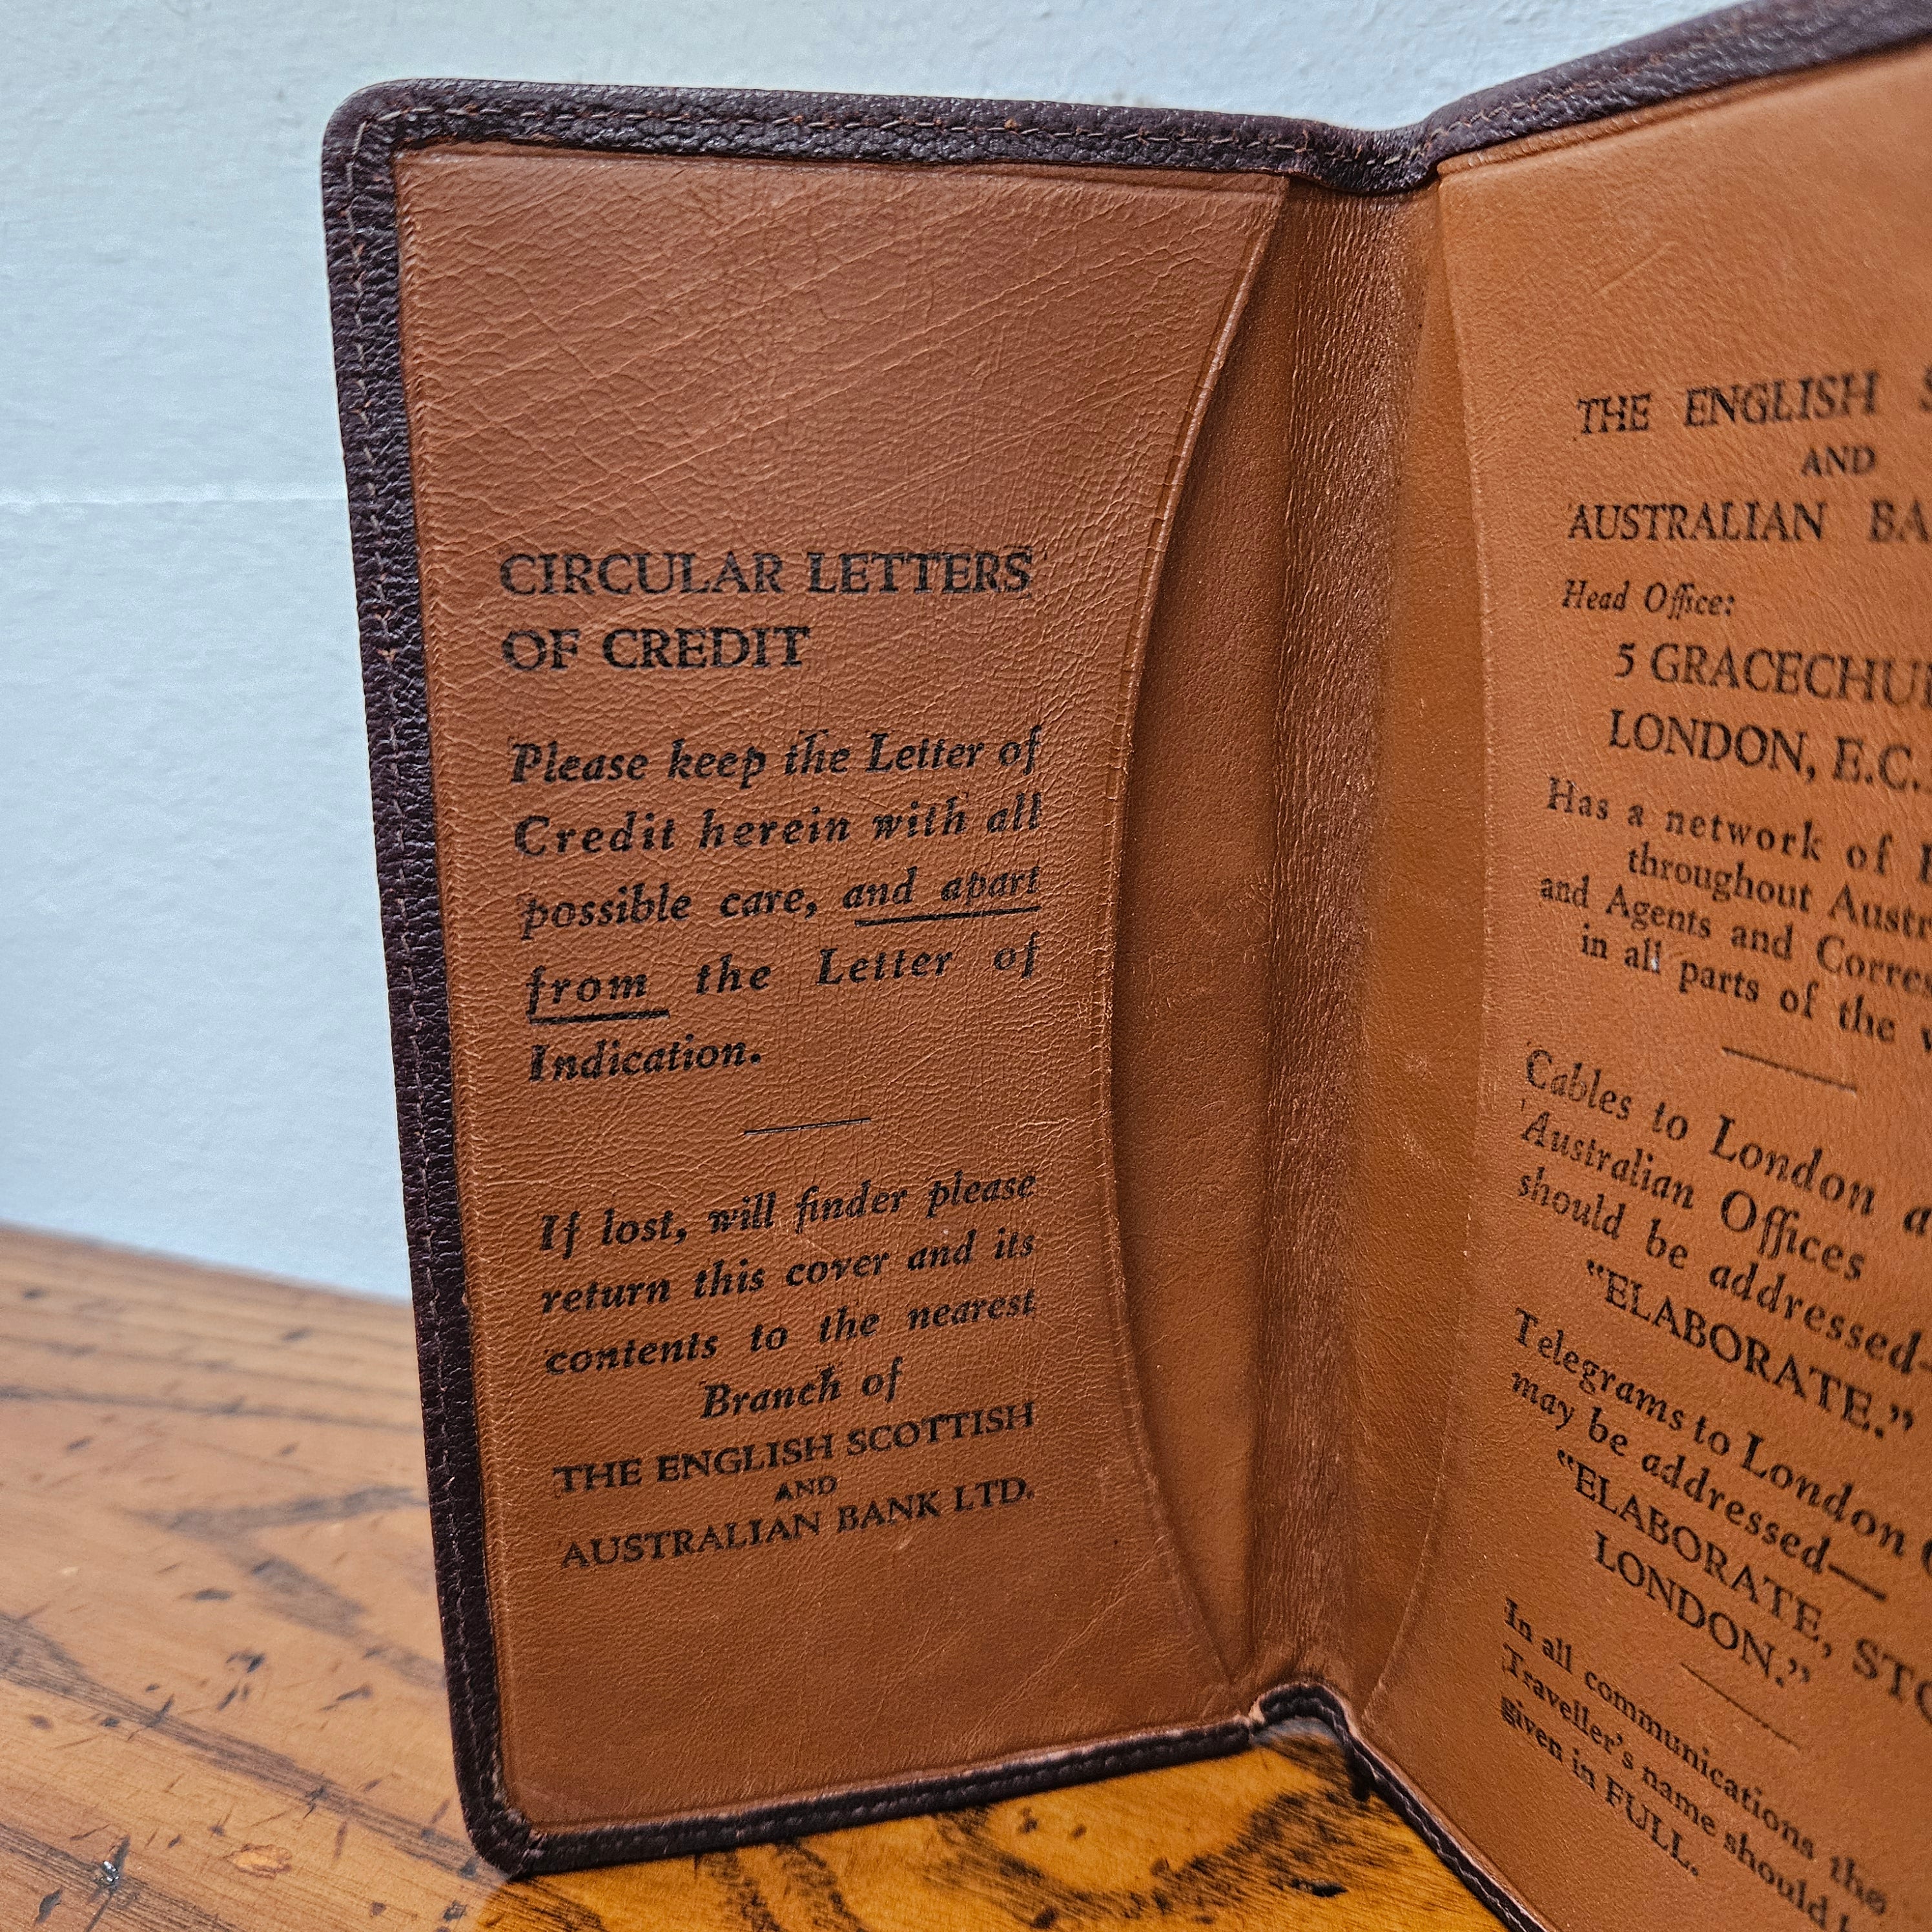 CIRCULAR LETTERS
OF CREDIT
Please keep the Letter of
Credit herein with all
possible care, and apart
from the Letter of
Indication.
If lost, will finder please
return this cover and its
contents to the nearest
Branch of
THE ENGLISH SCOTTISH
AND
AUSTRALIAN BANK LTD.
THE ENGLISH
AND
AUSTRALIAN
Head Office:
5
LONDON, E.C.
Has a network of
throughout
and Agents and
in all parts of the
Cables to London
Australian Offices
should be addressed—
"ELABORATE."
Telegrams to London
may be addressed—
"ELABORATE,
LONDON."
In all communications the
Traveller's name should
given in FULL.